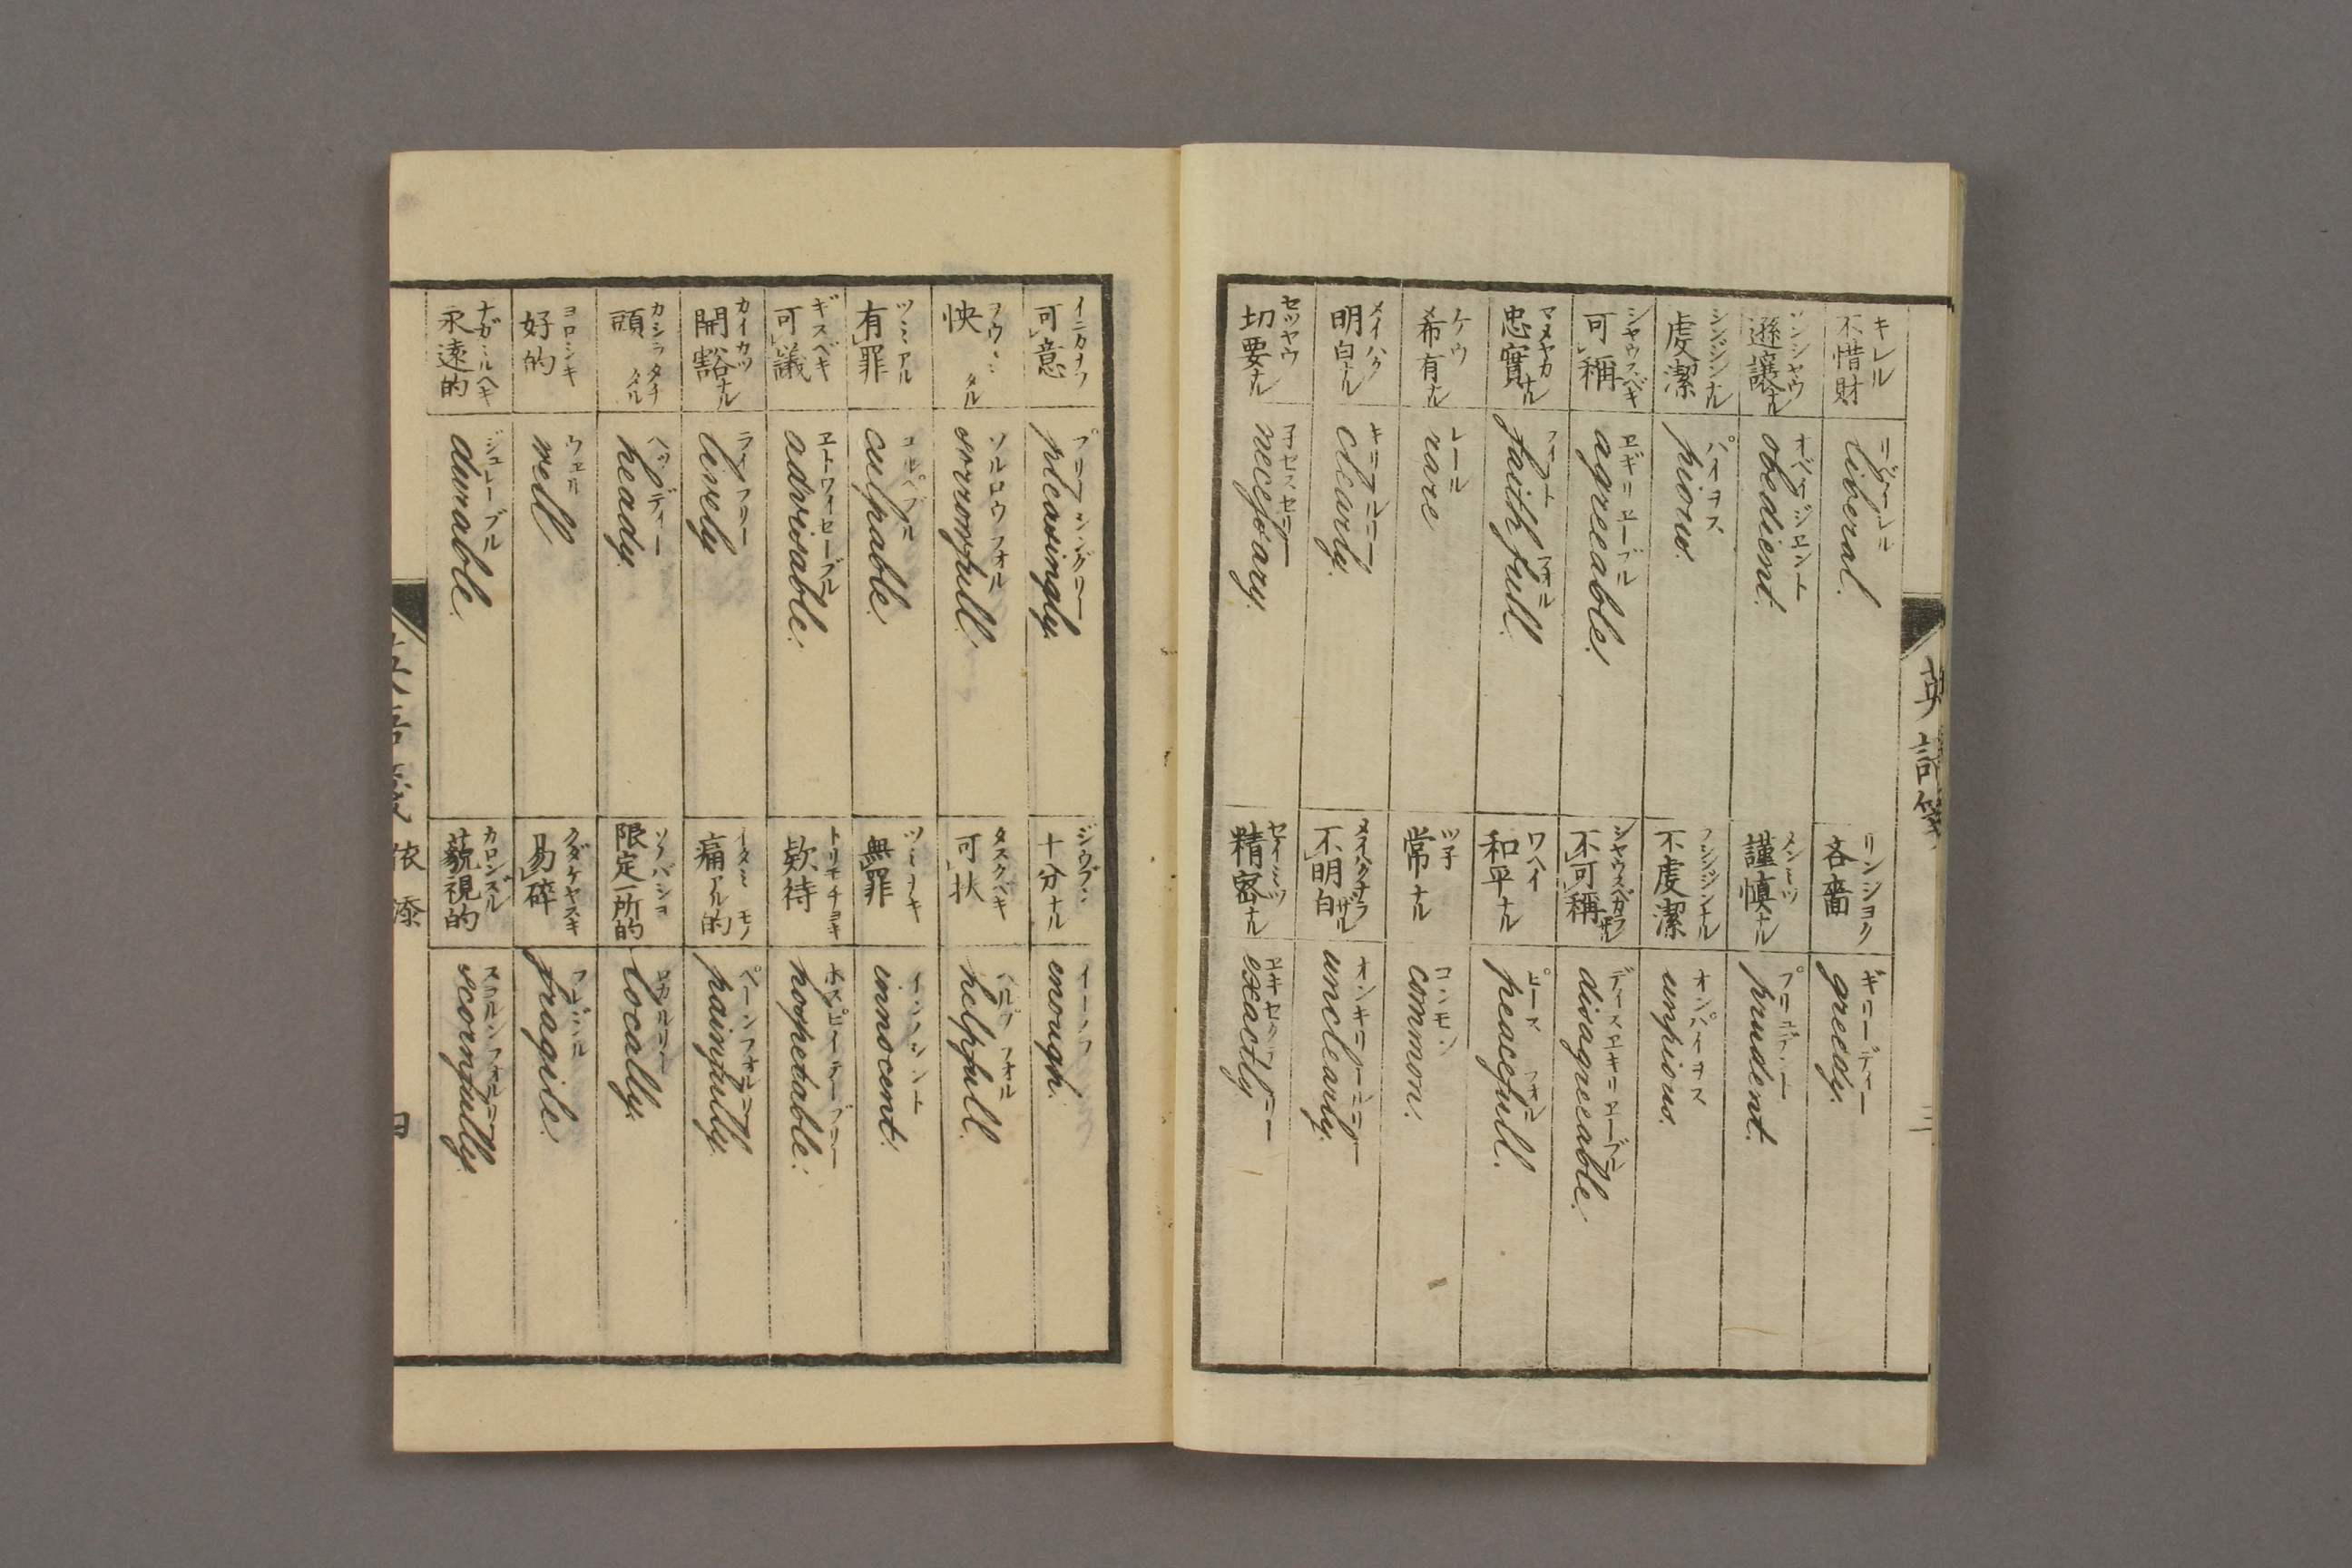 英語箋
三
キレル
不惜財
liberal.
ソンジヤウ
遜讓ナル
オベージエント
obedient.
シンジンナル
虔潔
パイヲス
pious.
シヤウスベキ
可稱
ヱギリヱーブル
agreeable.
マメヤカ
忠實ナル
フェート フオル
faithfull.
ケウ
希有ナル
レール
rare
メイハク
明白ナル
キリールリー
clearly.
セツヤウ
切要ナル
子セスセリー
necessary.
リンシヨク
吝嗇
ギリーディー
greedy.
メンミツ
謹慎ナル
プリュデント
prudent.
フシンジンナル
不虔潔
オンパイヲス
unpious.
シヤウスベカラザル
不可稱
ディスヱキリヱーブル
disagreeable.
ワヘイ
和平ナル
ピース フオル
peacefull.
ツ子
常ナル
コンモン
common.
メイハクナラザル
不明白
オンキリールリー
unclearly.
セイミツ
精密ナル
ヱキセクテリー
exactly
イニカナフ
可意
プリーシングリー
pleasingly.
怏
タル
ソルロウフオル
sorrowfull.
ツミアル
有罪
コルペブル
culpable.
ギスベキ
可議
ヱトワイセーブル
advisable.
カイカツ
開豁ナル
ライフリー
lively
カシラダチ
頭
タル
ヘッディー
heady.
ヨロシキ
好的
ウェル
well
ナガミルヘキ
永遠的
ジュレーブル
durable.
ジウブン
十分ナル
イーノフ
enough.
タスクベキ
可扶
ヘルプフオル
helpfull.
ツミナキ
無罪
インノシント
innocent.
トリモチヨキ
欵待
ホスピテーブリー
hospetable.
イタミ モノ
痛アル的
ペーンフオルリー
painfully
ソノバシヨ
限定一所的
ロカルリー
locally.
クダケヤスキ
易碎
フレジル
fragile.
カロンズル
藐視的
スコルンフオルリー
scornfully.
依添